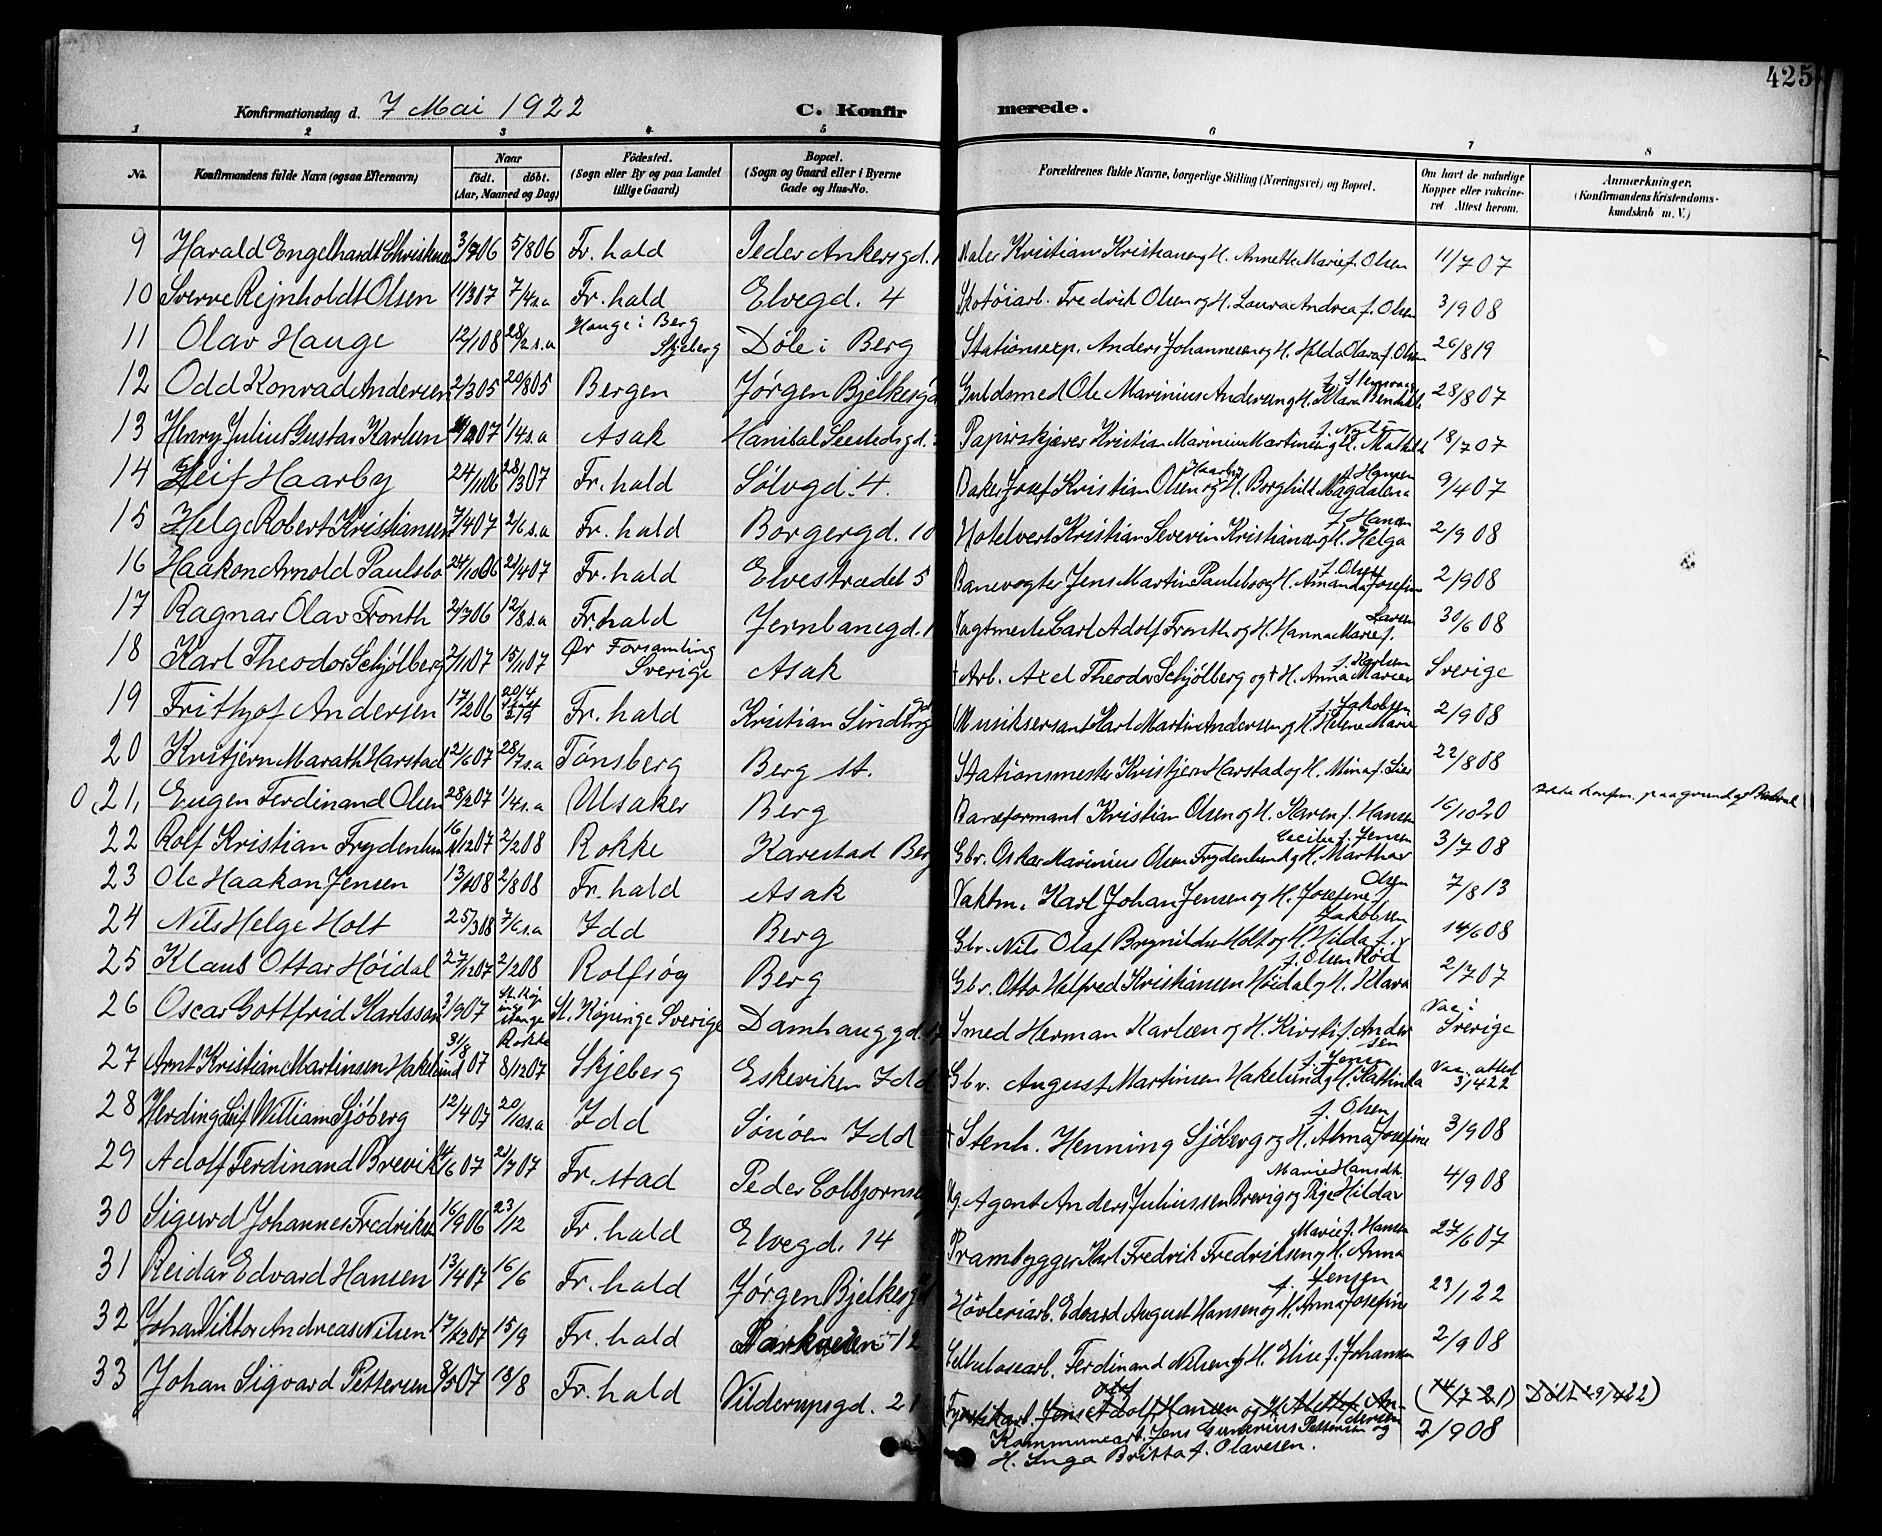 425
Konfirmationsdag d. 7 Mai 1922 C. Konfir merede.
1 2 3 4 5 6 7 8
No. Konfirmandens fulde Navn (ogsaa Efternavn) Naar födt. döbt. (Aar, Maaned og Dag) Födested. (Sogn eller By og paa Landet tillige Gaard) Bopæl. (Sogn og Gaard eller i Byerne Gade og Hus-No. Forældrenes fulde Navne, borgerlige Stilling (Næringsvei) og Bopæl. Om havt de naturlige Kopper eller vakcineret Attest herom. Anmærkninger. (Konfirmandens Kristendomskundskab m. V.)
9 Harald Engelhardt 5/806 Fr. hald Peder Ankersgd. Maler Kristian Kristiansen og H. Annette Marie f. Olsen 11/707
10 Sverre Rejnholdt Olsen 11/307 7/4 s.a Fr. hald Elvegd. 4 Skotøiarb. Fredrik Olsen og H. Laura Andrea f. Olsen 3/908
11 Olav Hauge 12/108 28/2 s.a Hauge i Berg Skjeberg Døle i Berg Stationsexp. Anders Johannesen og H. Hilda Olava f. Olsen 26/819
12 Odd Konrad Andersen 2/305 20/805 Bergen Jørgen Bjelkesgd Guldsmed Ole Marinius Andersen og H. 28/807
13 Henry Julius Gustav Karlsen 1/4 s.a Asak Hanibal Seestedsgd. Papirskjærer Kristian Marinius 18/707
14 Leif Haarby 24/1106 28/307 Fr. hald Sølvgd. 4. Baker Josef Kristian Olsen Haarby og H. Borghild Magdalena f. Hansen 9/407
15 Helge Robert Kristiansen 7/407 2/6 s.a Fr. hald Borgergd. 10 Hotelvert Kristian Severin Kristiansen og H. Helga f. Hansen 2/908
16 Haakon Arnold Paulsbo 24/1006 21/407 Fr. hald Elvestrædet 5 Banevogter Jens Martin Paulsbo og H. Amanda Josefine f. Olsen 2/908
17 Ragnar Olav Fronth 2/706 12/8 s.a Fr. hald Jernbanegd. Vagtmester Carl Adolf Fronth og H. Hanna Marie f. Larsen 30/608
18 Karl Theodor Schjølberg 2/1107 15/1107 Ør Forsamling Sverige Asak † Arb. Axel Theodor Schjølberg og † H. Anna Maria f. Karlsen Sverige
19 Frithjof Andersen 17/206 Fr. hald Kristian Sindingsgd Musiksersant Karl Martin Andersen og H. Helene Marie f. Jakobsen 2/908
20 Kristjern Marath Harstad 2/607 28/7 s.a Tønsberg Berg st. Stationsmester Kristjern Harstad og H. Mina f. Lier 22/808
0 21, Eugen Ferdinand Olsen 28/207 1/4 s.a Ulsaker Berg Baneformand Kristian Olsen og H. Karen f. Hansen 16/1020 Ikke konfm. paa grund af
22 Rolf Kristian Frydenlund 16/1207 2/208 Rokke Karestad Berg Gbr. Oskar Marinius Olsen Frydenlund og H. Martha Cecilie f. Jensen 3/708
23 Ole Haakon Jensen 13/108 2/808 Fr. hald Asak Vaktm. Karl Johan Jensen og H. Josefine f. Olsen 7/813
24 Nils Helge Holt 25/308 7/6 s.a Idd Berg Gbr. Nils Olaf Brynildsen Holt og H. Hilda f. Jakobsen 14/608
25 Klaus Ottar Høidal 27/1207 2/208 Rolfsøy Berg Gbr. Otto Halfred Kristiansen Høidal og H. Klara f. Olsen Rød 2/707
26 Oscar Gottfrid Karlsson 3/907 St. Kjøpinge Sverige Damhauggd. Smed Herman Karlsen og H. Kirsti f. Andersen Vac. i Sverige
27 Arnt Kristian Martinsen Hakelund 31/807 Rokke 8/1207 Skjeberg Eskeviken Idd Gbr. August Martinsen Hakelund og H. Kattinka f. Jensen Vac. attest 3/422
28 Herding Leif William Sjøberg 12/407 20/10 s.a Idd Sønøen Idd † Stenh. Henning Sjøberg og H. Alma Josefine f. Olsen 3/908
29 Adolf Ferdinand Brevik 14/607 21/707 Fr. stad Peder Colbjørnsg Ug. Agent Anders Juliussen Brevig og Pige Hilda Marie Hansdtr. 4/908
30 Sigurd Johannes Fredriksen 16/906 23/12 Fr. hald Elvegd. 14 Prambygger Karl Fredrik Fredriksen og H. Anna Marie f. Hansen 27/607
31 Reidar Edvard Hansen 13/407 16/6 Fr. hald Jørgen Bjelkesgd Høvleriarb. Edvard August Hansen og H. Anna Josefine f. Jensen 23/122
32 Johan Viktor Andreas Nilsen 15/9 Fr. hald Parkveien 12 Cellulosearb. Ferdinand Nilsen og H. Elise f. Johansen 2/908
33 Johan Sigvard Pettersen 8/507 18/8 Fr. hald Vilderupsgd. 21 Fyrstikarb. Jens Adolf Hansen og H. Alette f. Andersen (14/7 21) Døbt 29/422)
Kommunearb. Jens Gunerius Pettersen og 2/908
H. Inga Britta f. Olavesen.